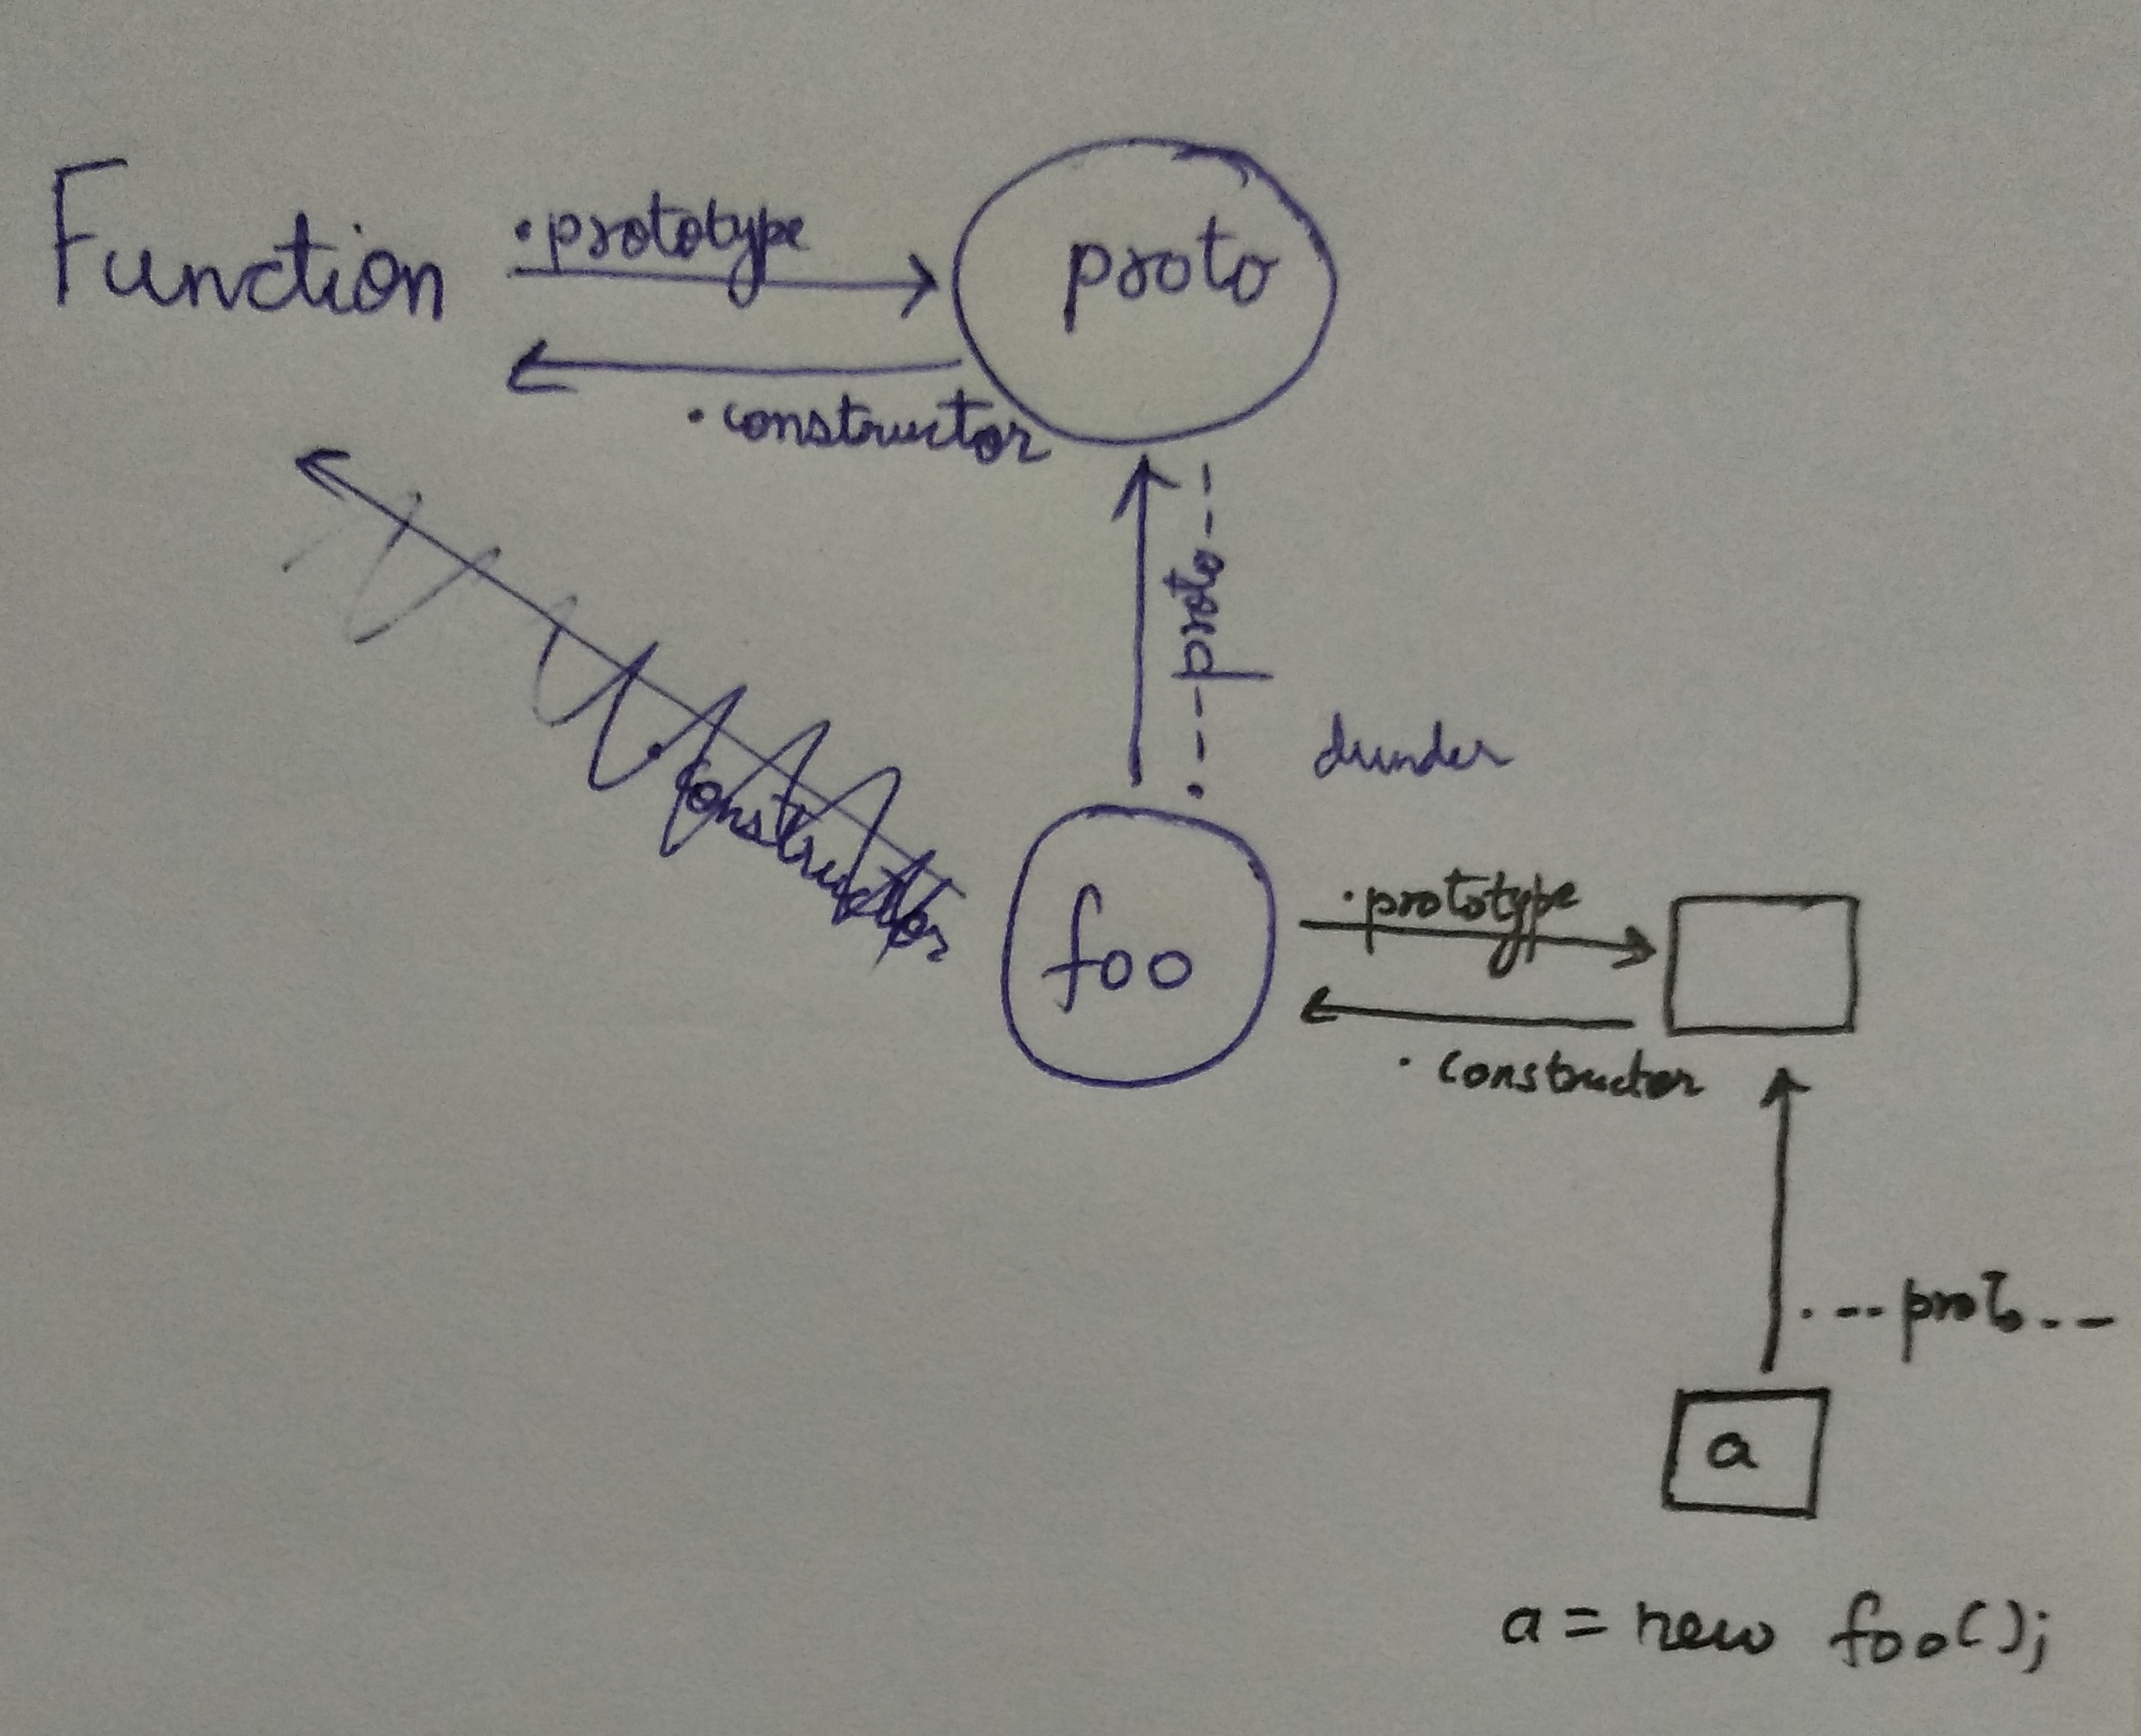 Function
.prototype
proto
.constructor
.__proto__
dunder
.constructor
foo
.prototype
.constructor
.__proto__
a
a = new foo();